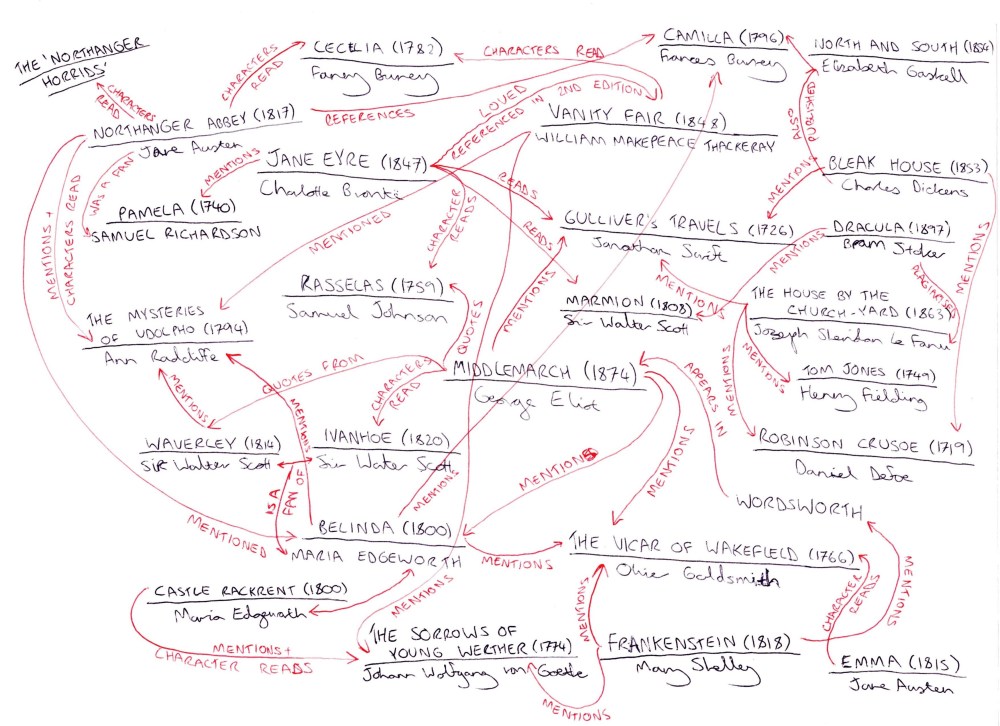 THE 'NORTHANGER
HORRIDS'
CHARACTERS
READ
CHARACTERS
READ
CECELIA (1782)
Fanny Burney
CHARACTERS READ
CAMILLA (1796)
Frances Burney
NORTH AND SOUTH (1854)
Elizabeth Gaskell
NORTHANGER ABBEY (1817)
Jane Austen
REFERENCES
LOVED
REFERENCED IN 2ND EDITION
VANITY FAIR (1848)
WILLIAM MAKEPEACE THACKERAY
ALSO
PUBLISHED
MENTIONS +
CHARACTERS READ
WAS A FAN
MENTIONS
JANE EYRE (1847)
Charlotte Brontë
READS
MENTIONS
BLEAK HOUSE (1853)
Charles Dickens
PAMELA (1740)
SAMUEL RICHARDSON
MENTIONED
CHARACTER
READS
READS
GULLIVER'S TRAVELS (1726)
Jonathan Swift
MENTIONS
DRACULA (1897)
Bram Stoker
MENTIONS
PLAGIARISES
RASSELAS (1759)
Samuel Johnson
MENTIONS
MARMION (1808)
Sir Walter Scott
MENTIONS
THE HOUSE BY THE
CHURCH-YARD (1863)
Joseph Sheridan Le Fanu
THE MYSTERIES
OF UDOLPHO (1794)
Ann Radcliffe
QUOTES
QUOTES FROM
CHARACTERS
READ
MIDDLEMARCH (1874)
George Eliot
APPEARS IN
MENTIONS
MENTIONS
TOM JONES (1749)
Henry Fielding
MENTIONS
MENTIONS
WAVERLEY (1814)
Sir Walter Scott
IVANHOE (1820)
Sir Walter Scott
MENTIONS
MENTIONS
MENTIONS
ROBINSON CRUSOE (1719)
Daniel Defoe
IS A
FAN OF
WORDSWORTH
MENTIONED
BELINDA (1800)
MARIA EDGEWORTH
MENTIONS
THE VICAR OF WAKEFIELD (1766)
Oliver Goldsmith
CHARACTER
READS
MENTIONS
CASTLE RACKRENT (1800)
Maria Edgeworth
MENTIONS
MENTIONS
MENTIONS +
CHARACTER READS
THE SORROWS OF
YOUNG WERTHER (1774)
Johann Wolfgang von Goethe
FRANKENSTEIN (1818)
Mary Shelley
EMMA (1815)
Jane Austen
MENTIONS